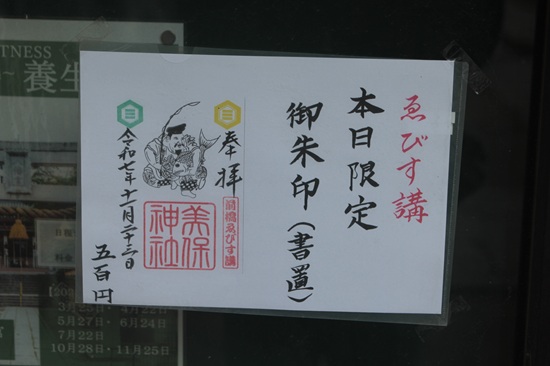 ゑびす講
本日限定
御朱印(書置)
奉拝
前橋ゑびす講
美保
神社
令和七年十一月二十三日
五百円
TNESS
～養生
3月25日・4月22日
5月27日・6月24日
7月22日
10月28日・11月25日